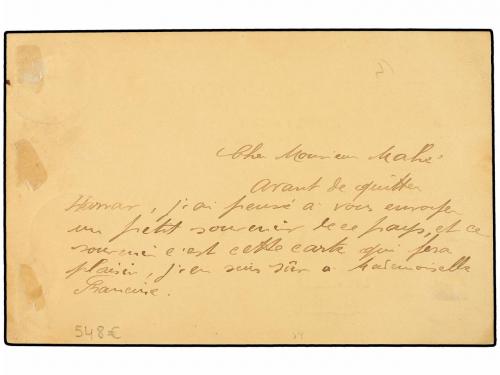 Cher Monsieur Mahé
Avant de quitter
Harrar, j'ai pensé à vous envoyer
un petit souvenir de ce pays, et ce
souvenir c'est cette carte qui fera
plaisir, j'en suis sûr à Mademoiselle
Francine.
548€